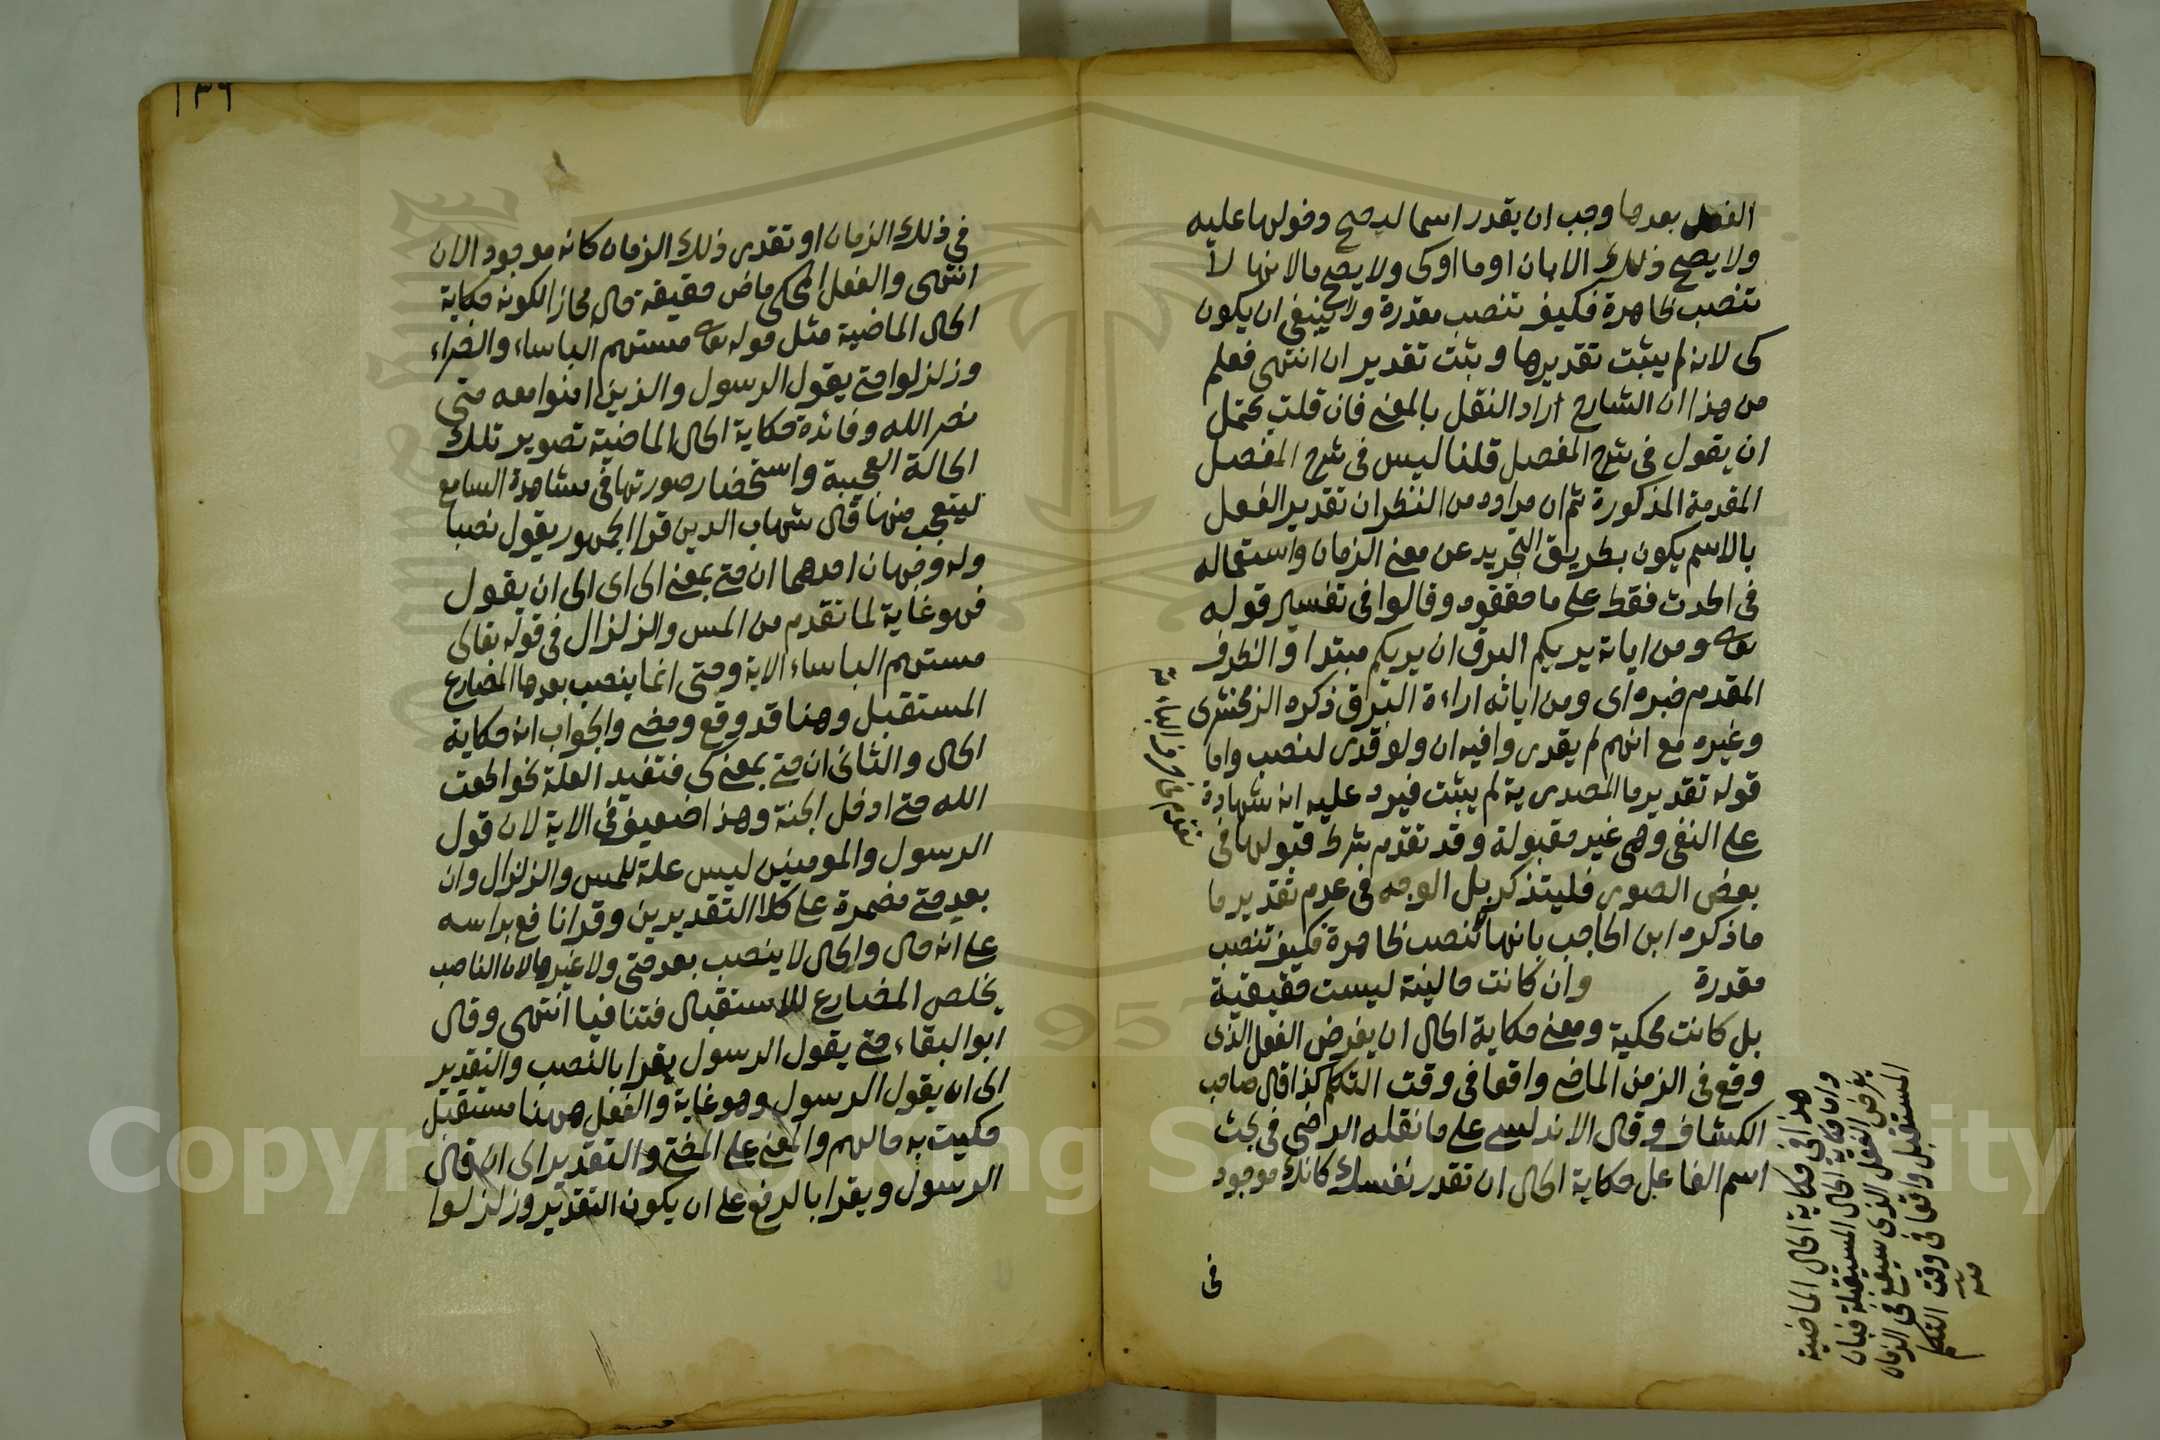 الفعل بعدها وجب ان يقدر اسما ليصح دخولها عليه
ولا يصح ذلك الا بان او ما او كى ولا يصح ما لانها لا
تنصب ظاهرة فكيف تنصب مقدرة ولا ينبغى ان يكون
كى لانه لم يثبت تقديرها وثبت تقدير ان انتهى فعلم
من هذا ان الشارح اراد النقل بالمعنى فان قلت يحتمل
ان يقول فى شرح المفصل قلنا ليس فى شرح المفصل
المقدمة المذكورة ثم ان مراده من النظر ان تقدير الفعل
بالاسم يكون بطريق التجريد عن معنى الزمان واستعماله
فى الحدث فقط على ما حققوه وقالوا فى تفسير قوله
تعه ومن اياته يريكم البرق ان يريكم مبتدا والظرف
المقدم خبره اى ومن اياته اراءة البرق ذكره الزمخشرى
وغيره مع انهم لم يقدروا فيه ان ولو قدر لنصب واما
قوله تقدير ما المصدرية لم يثبت فيرد عليه انه شهادة
على النفى وهى غير مقبولة وقد تقدم شرط قبولها فى
بعض الصور فليتذكر بل الوجه فى عدم تقدير ما
ما ذكره ابن الحاجب بانها تنصب ظاهرة فكيف تنصب
مقدرة وان كانت حاليته ليست حقيقية
بل كانت محكية ومعنى حكاية الحال ان يفرض الفعل الذى
وقع فى الزمن الماضى واقعا فى وقت التكلم كذا قال صاحب
الكشاف وقال الاندلسى على ما نقله الرضى فى بحث
اسم الفاعل حكاية الحال ان تقدر نفسك كانك موجود
فى
هذا فى حكاية الحال الماضية
واما حكاية الحال المستقبلة فبان
يفرض الفعل الذى سيقع فى الزمان
المستقبل واقعا فى وقت التكلم
منه
١٣٦
فى ذلك الزمان او تقدر ذلك الزمان كانه موجود الان
انتهى والفعل المحكى ماض حقيقة حال مجازا لكونه حكاية
الحال الماضية مثل قوله تعه مستهم الباساء والضراء
وزلزلوا حتى يقول الرسول والذين امنوا معه متى
نصر الله وفائدة حكاية الحال الماضية تصوير تلك
الحالة العجيبة واستحضار صورتها فى مشاهدة السامع
ليتعجب منها قال شهاب الدين قرا الجمهور يقول نصبا
وله وجهان احدهما ان حتى بمعنى الى اى الى ان يقول
فهو غاية لما تقدم من المس والزلزال فى قوله تعالى
مستهم الباساء الاية وحتى انما ينصب بعدها المضارع
المستقبل وهنا قد وقع ومضى والجواب انه حكاية
الحال والثانى ان حتى بمعنى كى فتفيد العلة نحو اطعت
الله حتى ادخل الجنة وهذا ضعيف فى الاية لان قول
الرسول والمومنين ليس علة للمس والزلزال وان
بعد حتى مضمرة على كلا التقديرين وقرا نافع براسه
على انه حال والحال لا ينصب بعد حتى ولا غيرها لان الناصب
يخلص المضارع للاستقبال فتنافيا انتهى وقال
ابو البقاء حتى يقول الرسول يقرا بالنصب والتقدير
الى ان يقول الرسول وهو غاية والفعل ههنا مستقبل
حكيت به حالهم والمعنى على المضى والتقدير الى ان قال
الرسول ويقرا بالرفع على ان يكون التقدير وزلزلوا
Copyright © King Saud University
1957